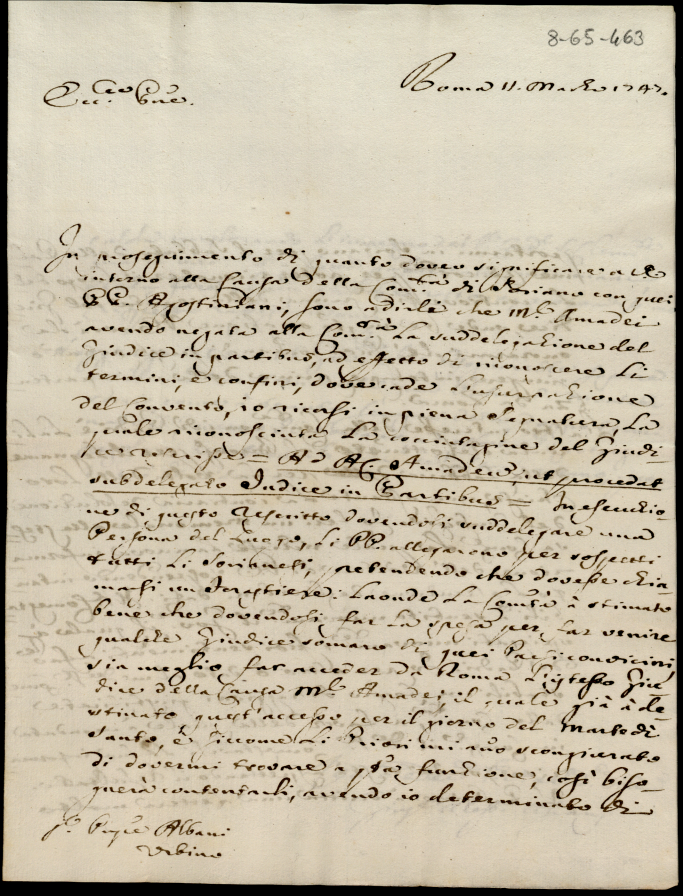 8-65-463
Roma 11. Marzo 1747.
Ecc.mo Sig.re
In proseguimento di quanto dovei significare a VE
intorno alla Causa della Com.tà di Soriano con quei
PP. Agostiniani, sono a dirle che Mr. Amadei
avendo negata alla Com.tà la suddelegazione del
Giudice in partibus, ad effetto di riconoscere li
termini, e confini, dove cade l'usurpazione
del Convento, io ricorsi in piena Segnatura, la
quale riconosciuta la cocciutagine del Giudi-
ce rescrisse = Ad A.C. Amadeum, ut procedat
subdelegato Iudice in Partibus = In esecuzio-
ne di questo rescritto dovendosi suddelegare una
Persona del Luogo, li PP. allegarono per sospetti
tutti li Sorianesi, pretendendo che dovesse chia-
marsi un Forastiere: Laonde la Com.tà à stimato
bene che dovendosi far la spesa per far venire
qualche Giudice somaro di quei Paesi convicini,
sia meglio far acceder da Roma l'istesso Giu-
dice della Causa Mr. Amadei, il quale già à de-
stinato quest'accesso per il giorno del Martedì
Santo, e siccome li Priori mi àno scongiurato
di dovermi trovare a questa funzione, così biso-
gnerà contentarli, avendo io determinato di
Albani
Urbino